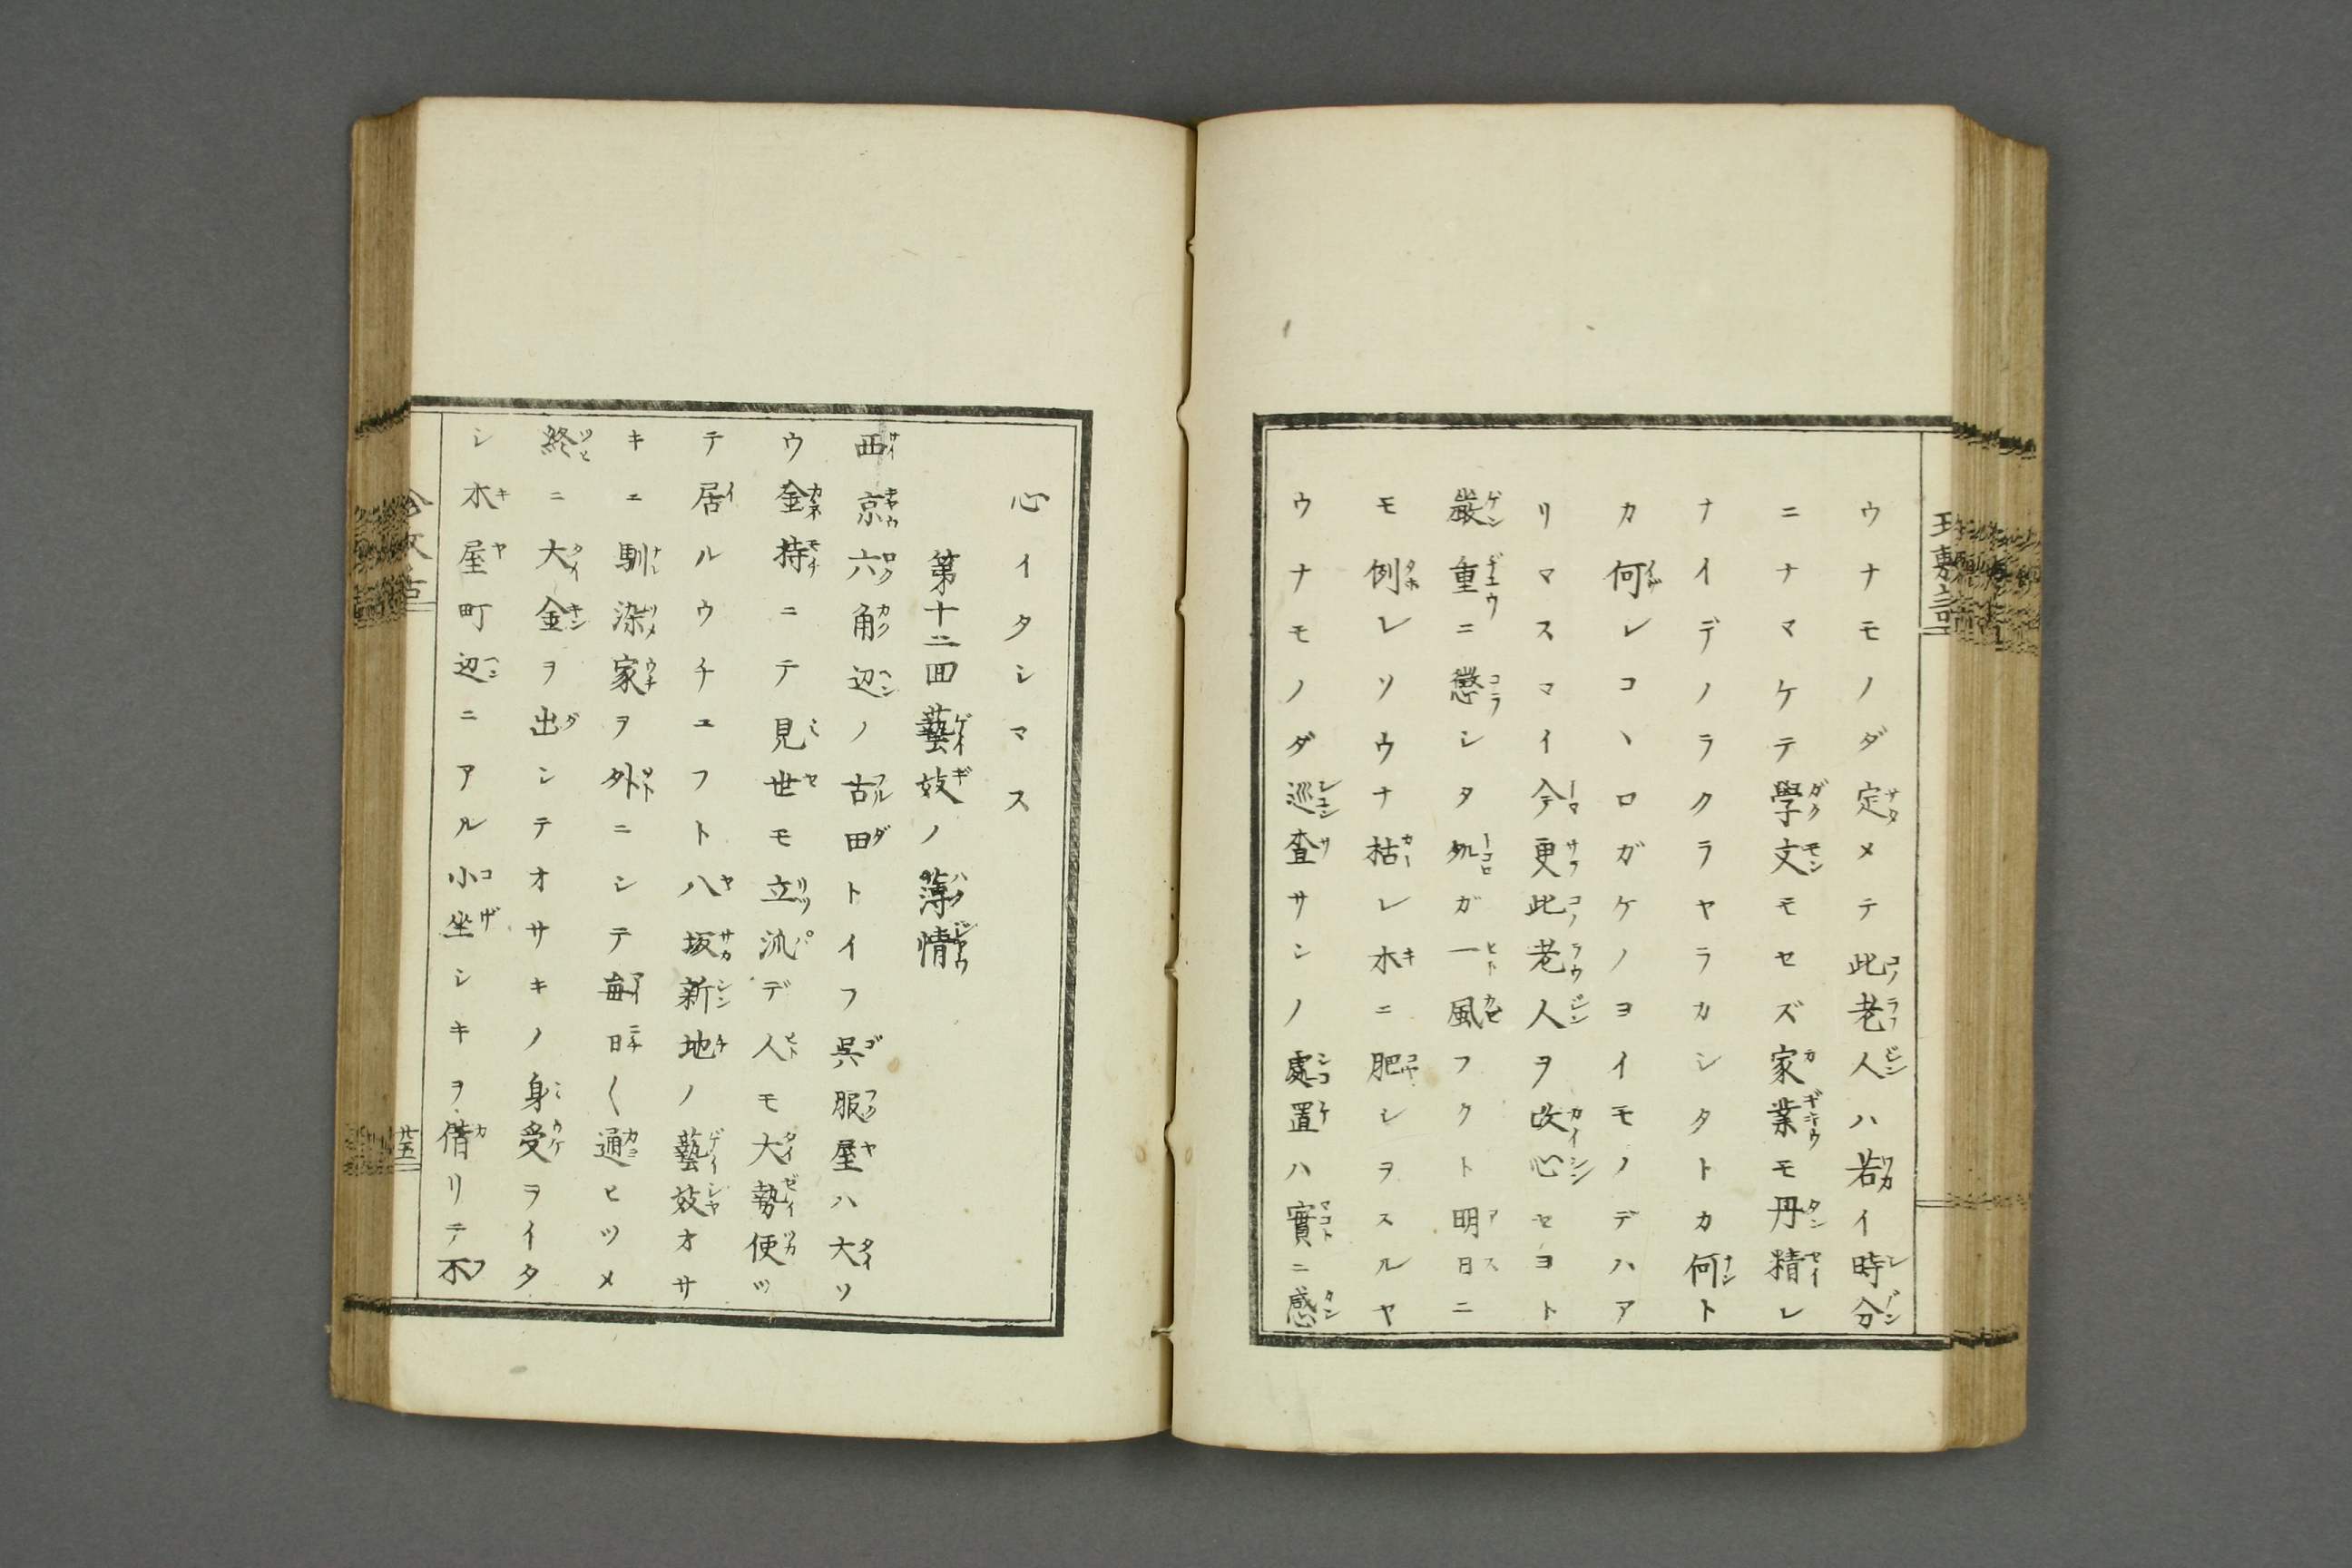 ウナモノダ定メテ此老人ハ若イ時分
ニナマケテ學文モセズ家業モ丹精レ
ナイデノラクラヤラカシタトカ何ト
カ何レコヽロガケノヨイモノデハア
リマスマイ今更此老人ヲ改心セヨト
嚴重ニ懲シタ処ガ一風フクト明日ニ
モ例レソウナ枯レ木ニ肥シヲスルヤ
ウナモノダ巡査サンノ處置ハ實ニ感
心イタシマス
第十二回藝妓ノ薄情
西京六角辺ノ古田トイフ呉服屋ハ大ソ
ウ金持ニテ見世モ立流デ人モ大勢便ッ
テ居ルウチユフト八坂新地ノ藝妓オサ
キェ馴染家ヲ外ニシテ毎日〱通ヒツメ
終ニ大金ヲ出シテオサキノ身受ヲイタ
シ木屋町辺ニアル小坐シキヲ借リテ不
廿五